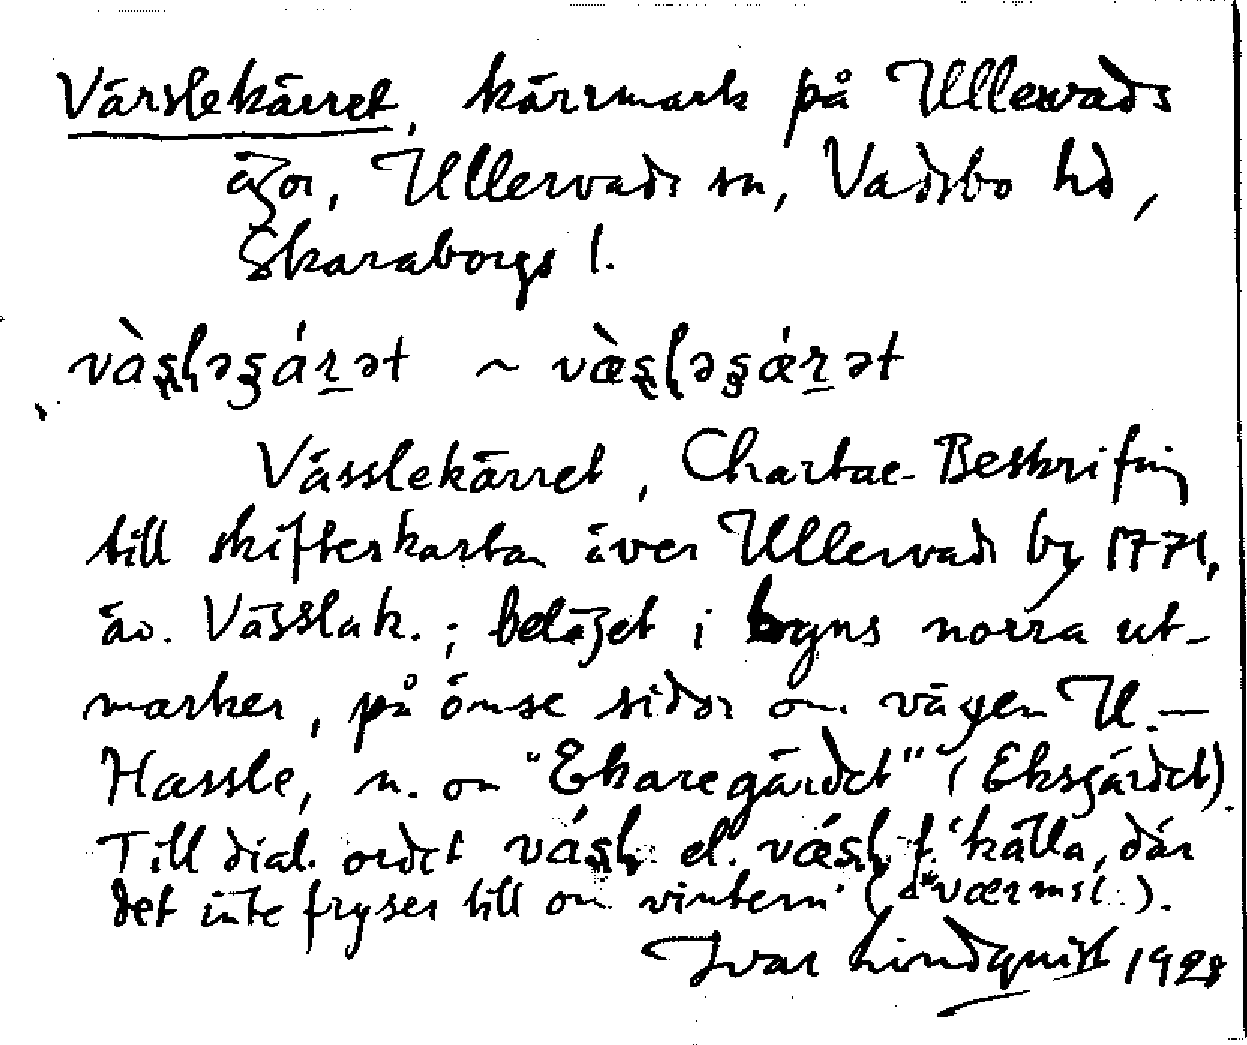 Värslekärret, kärrmark på Ullervads
ägor, Ullervads sn, Vadsbo hd,
Skaraborgs l.
vàʂɭəʂár̲ət ~ væ̀ʂɭəʂǽr̲ət
Vässlekärret, Chartae-Beskrifning
till skifteskartan över Ullervads by 1771,
äv. Vässlak.; beläget i byns norra ut-
marker, på ömse sidor om vägen U.–
Hassle, n. om "Ekaregärdet" (Eksgärdet).
Till dial. ordet váʂɭ el. vǽʂɭ f. 'källa, där
det inte fryser till om vintern' (< *værmsl..).
Ivar Lindquist 1928